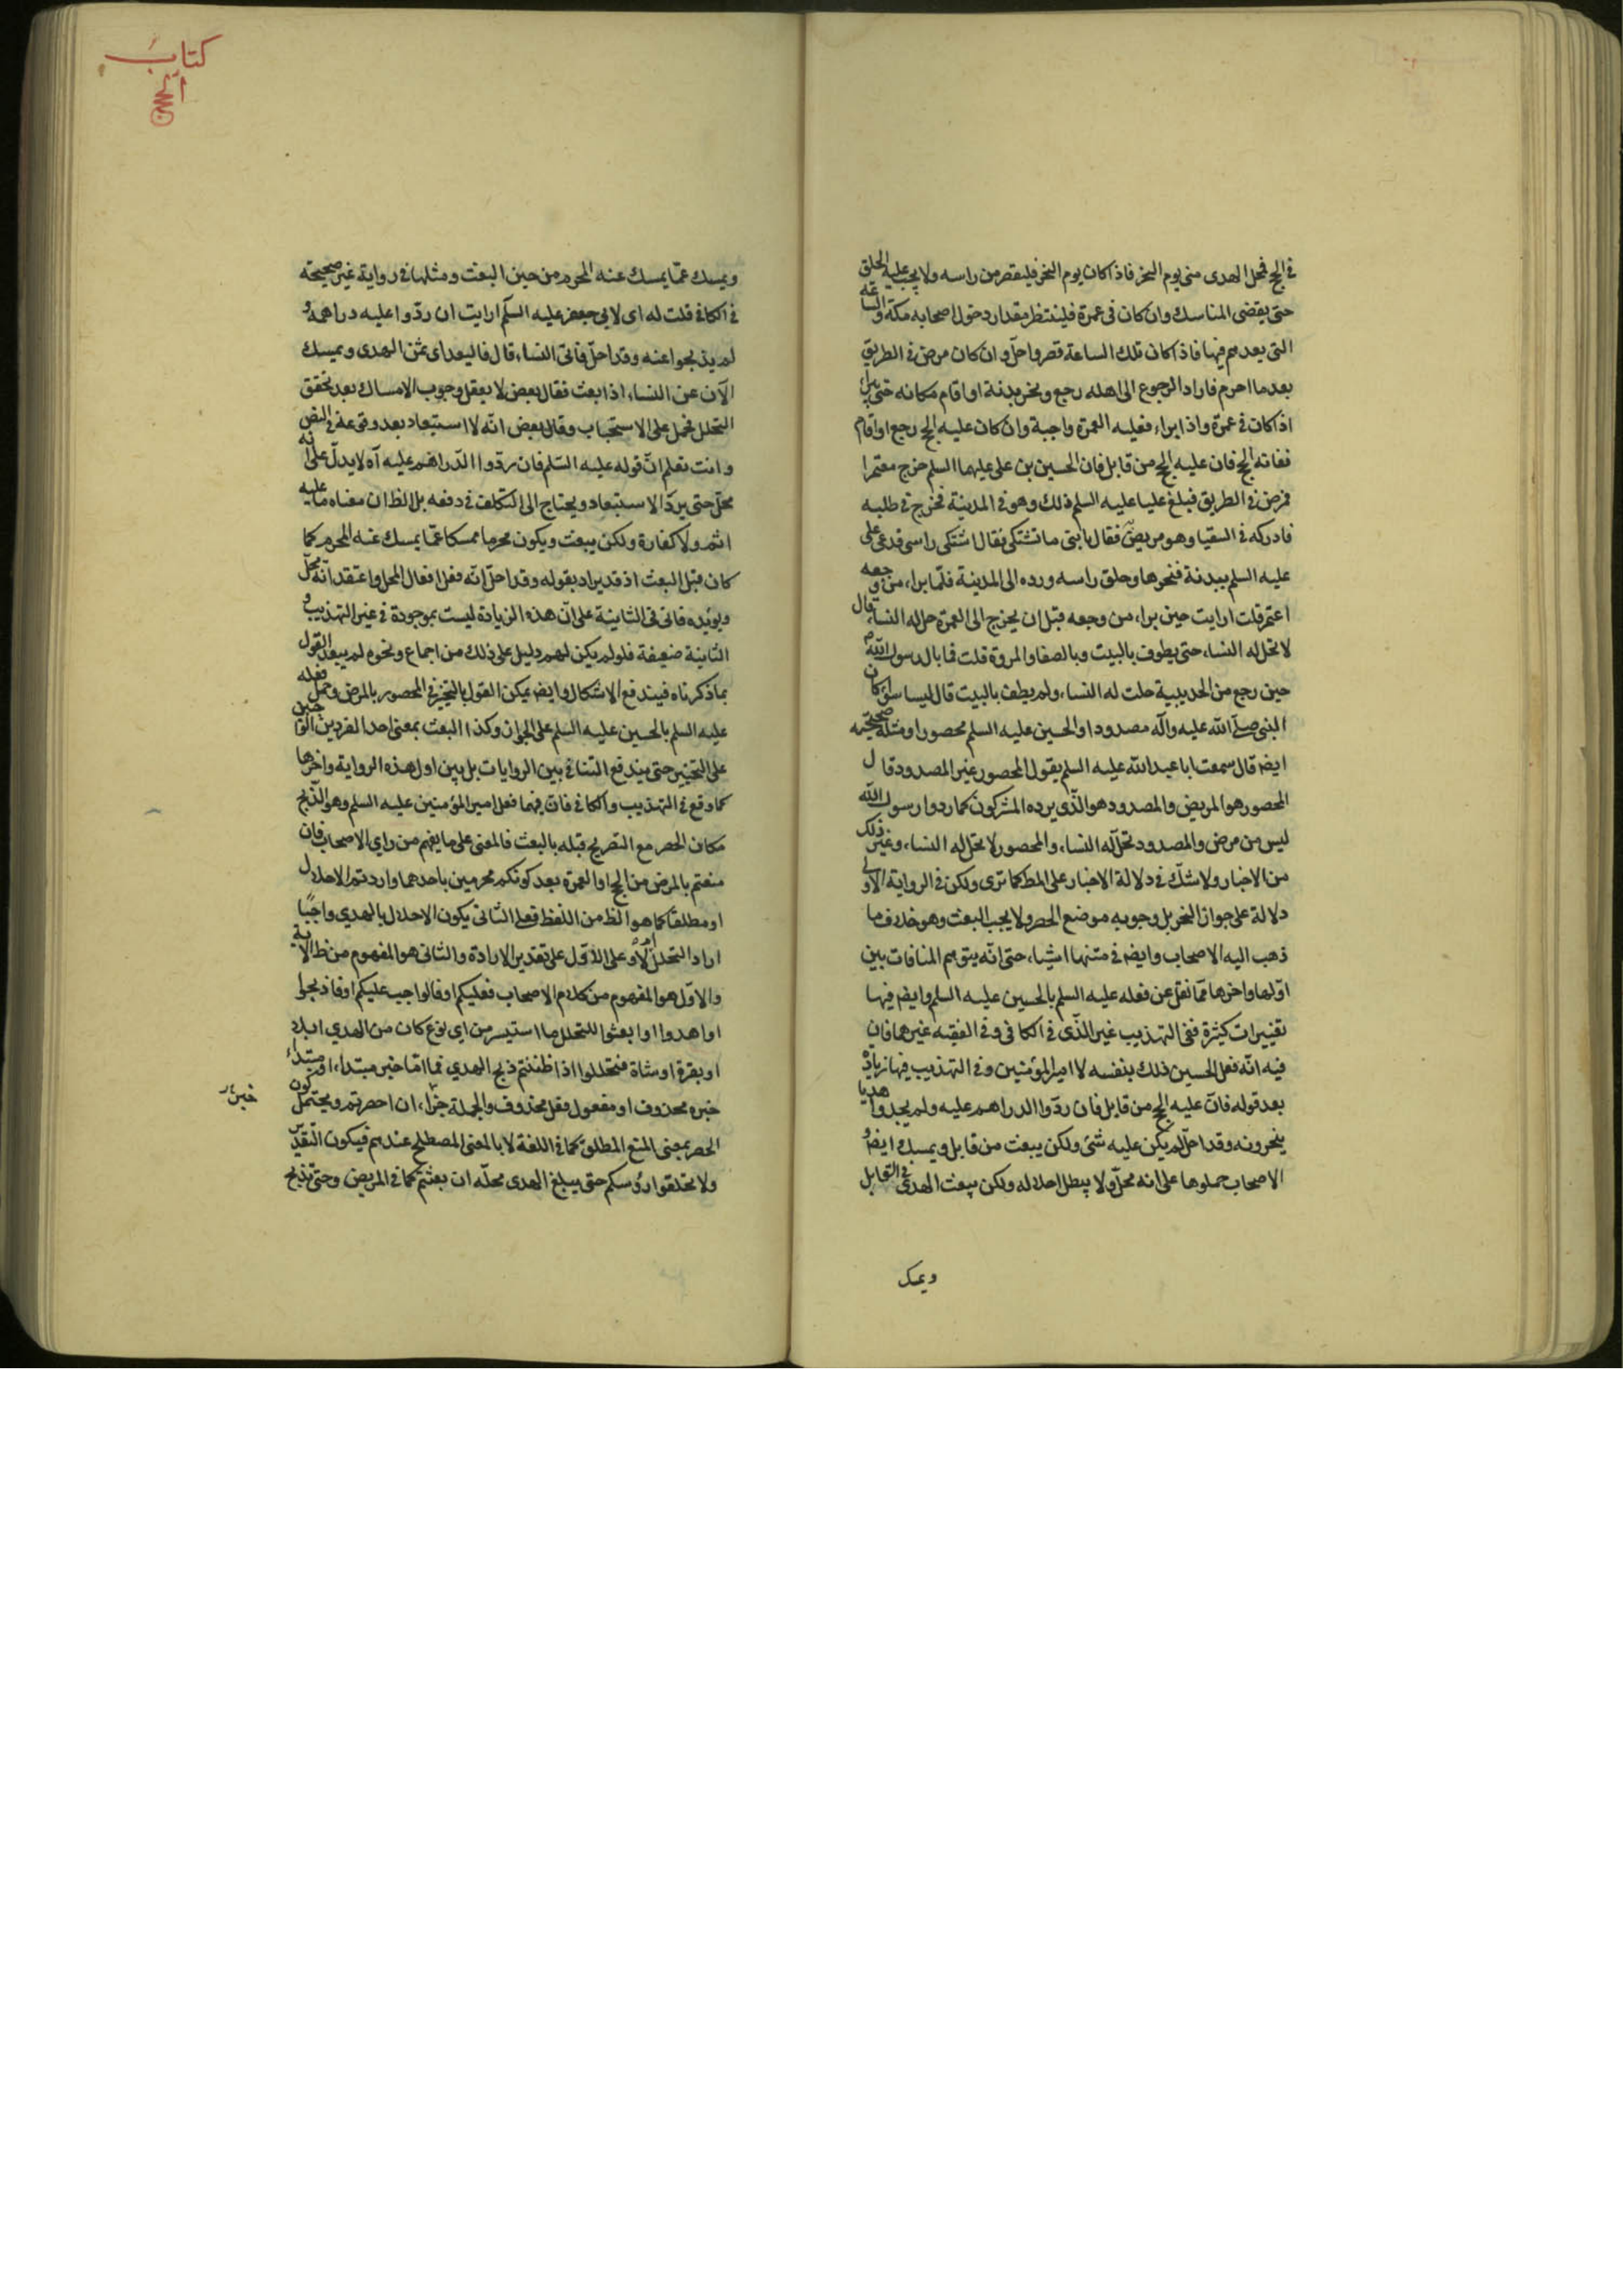 في الحج فمحل الهدى منى يوم النحر فاذا كان يوم النحر فليقصر من راسه ولا يجب عليه الحلق
حتى يقضى المناسك وان كان في عمرة فلينتظر مقدار دخول اصحابه مكة والساعة
التى يعدهم فيها فاذا كان تلك الساعة قصر واحلّ وان كان مرض في الطريق
بعد ما احرم فاراد الرجوع الى اهله رجع ونحر بدنة او اقام مكانه حتى يبراء
اذا كان في عمرة واذا ابراء فعليه العمرة واجبة وان كان عليه الحج رجع او اقام
ففاته الحج فان عليه الحج من قابل فان الحسين بن على عليهما السلم خرج معتمرا
فمرض في الطريق فبلغ عليا عليه السلم ذلك وهو في المدينة فخرج في طلبه
فادركه في السقيا وهو مريض فقال يا بنى ما تشتكى فقال اشتكى راسى فدعى على
عليه السلم ببدنة فنحرها وحلق راسه ورده الى المدينة فلمّا براء من وجعه
اعتمر قلت ارايت حين براء من وجعه قبل ان يخرج الى العمرة حل له النساء قال
لا تحل له النساء حتى يطوف بالبيت وبالصفا والمروة قلت فما بال رسول الله
حين رجع من الحديبية حلت له النساء ولم يطف بالبيت قال ليسا سواء كان
النبى صلى الله عليه وآله مصدودا والحسين عليه السلم محصورا ومثله صحيحته
ايضا قال سمعت ابا عبد الله عليه السلم يقول المحصور غير المصدود قال
المحصور هو المريض والمصدود هو الّذى يرده المشركون كما ردوا رسول الله
ليس من مرض والمصدود تحلّ له النساء والمحصور لا تحل له النساء وغير ذلك
من الاخبار ولا شكّ في دلالة الاخبار على المط كما ترى ولكن في الرواية الاولى
دلالة على جواز النحر بل وجوبه موضع الحصر ولا يجب البعث وهو خلاف ما
ذهب اليه الاصحاب وايضا في متنها اشياء حتى انّه يتوهم المنافات بين
اوّلها واخرها ممّا نقل عن فعله عليه السلم بالحسين عليه السلم وايضا فيها
تغييرات كثيرة ففى التهذيب غير الّذى في الكافى وفي الفقيه غيرهما فان
فيه انّه فعل الحسين ذلك بنفسه لا امير المؤمنين وفي التهذيب فيها زيادة
بعد قوله فانّ عليه الحج من قابل فان ردّوا الدراهم عليه ولم يجدوا هديا
ينحرونه وقد احلّ لم يكن عليه شئ ولكن يبعث من قابل ويمسك ايضا و
الاصحاب حملوها على انه محلّ ولا يبطل احلاله ولكن يبعث الهدى في القابل
ويمسك
كتاب
الحج
ويمسك عمّا يمسك عنه المحرم من حين البعث ومثلها في رواية غير صحيحة
في الكافى قلت له اى لابى جعفر عليه السلم ارايت ان ردّوا عليه دراهمه و
لم يذبحوا عنه وقد احلّ فاتى النساء قال فاليعد اى ثمن الهدى ويمسك
الآن عن النساء اذا بعث فقال بعض لا يعقل وجوب الامساك بعد تحقق
التحلل فحمل على الاستحباب وقال بعض انّه لا استبعاد بعد وقوعه في النص
وانت تعلم انّ قوله عليه السّلم فان ردّوا الدّراهم عليه آه لا يدلّ على انه
محلّ حتى يردّ الاستبعاد ويحتاج الى التكلف في دفعه بل الظ ان معناه ما عليه
اثم ولا كفارة ولكن يبعث ويكون محرما ممسكا عمّا يمسك عنه المحرم كما
كان قبل البعث اذ قد يراد بقوله وقد احلّ انّه فعل افعال المحل واعتقد انّه محلّ
ويويّده فاتى في الثانية على انّ هذه الزيادة ليست بموجودة في غير التهذيب و
الثانية ضعيفة فلو لم يكن لهم دليل على ذلك من اجماع ونحوه لم يبعد القول
بما ذكرناه فيندفع الاشكال وايضا يمكن القول بالتخيير في المحصور بالمرض وحمل فعله
عليه السلم بالحسين عليه السلم على الجواز وكذا البعث بمعنى احد الفردين
على التخيير حتى يندفع التنافى بين الروايات بل بين اول هذه الرواية واخرها
كما وقع في التهذيب والكافى فانّ فيهما فعل امير المؤمنين عليه السلم وهو الذّبح
مكان الحصر مع التصريح قبله بالبعث فالمعنى على ما يفهم من راى الاصحاب فان
منعتم بالمرض من الحج او العمرة بعد كونكم محرمين باحدهما واردتم الاحلال
او مطلقا كما هو الظ من اللفظ فعلى الثانى يكون الاحلال بالهدي واجبًا
اراد التحلل ام لا وعلى الاوّل على تقدير الارادة والثانى هو المفهوم من ظ الاية
والاوّل هو المفهوم من كلام الاصحاب فعليكم او فالواجب عليكم او فاذبحوا
او اهدوا او ابعثوا للتحلل ما استيسر من اى نوع كان من الهدي ابلا
او بقرة او شاة فتحللوا اذا ظننتم ذبح الهدي فما امّا خبر مبتداء او مبتداء
خبره محذوف او مفعول فعل محذوف والجملة جزاء ان احصرتم ويحتمل كون
الحصر بمعنى المنع المطلق كما في اللغة لا بالمعنى المصطلح عندهم فيكون التّقدير
ولا تحلقوا رؤسكم حتى يبلغ الهدى محلّه ان بعثتم كما في المريض وحتى تذبح